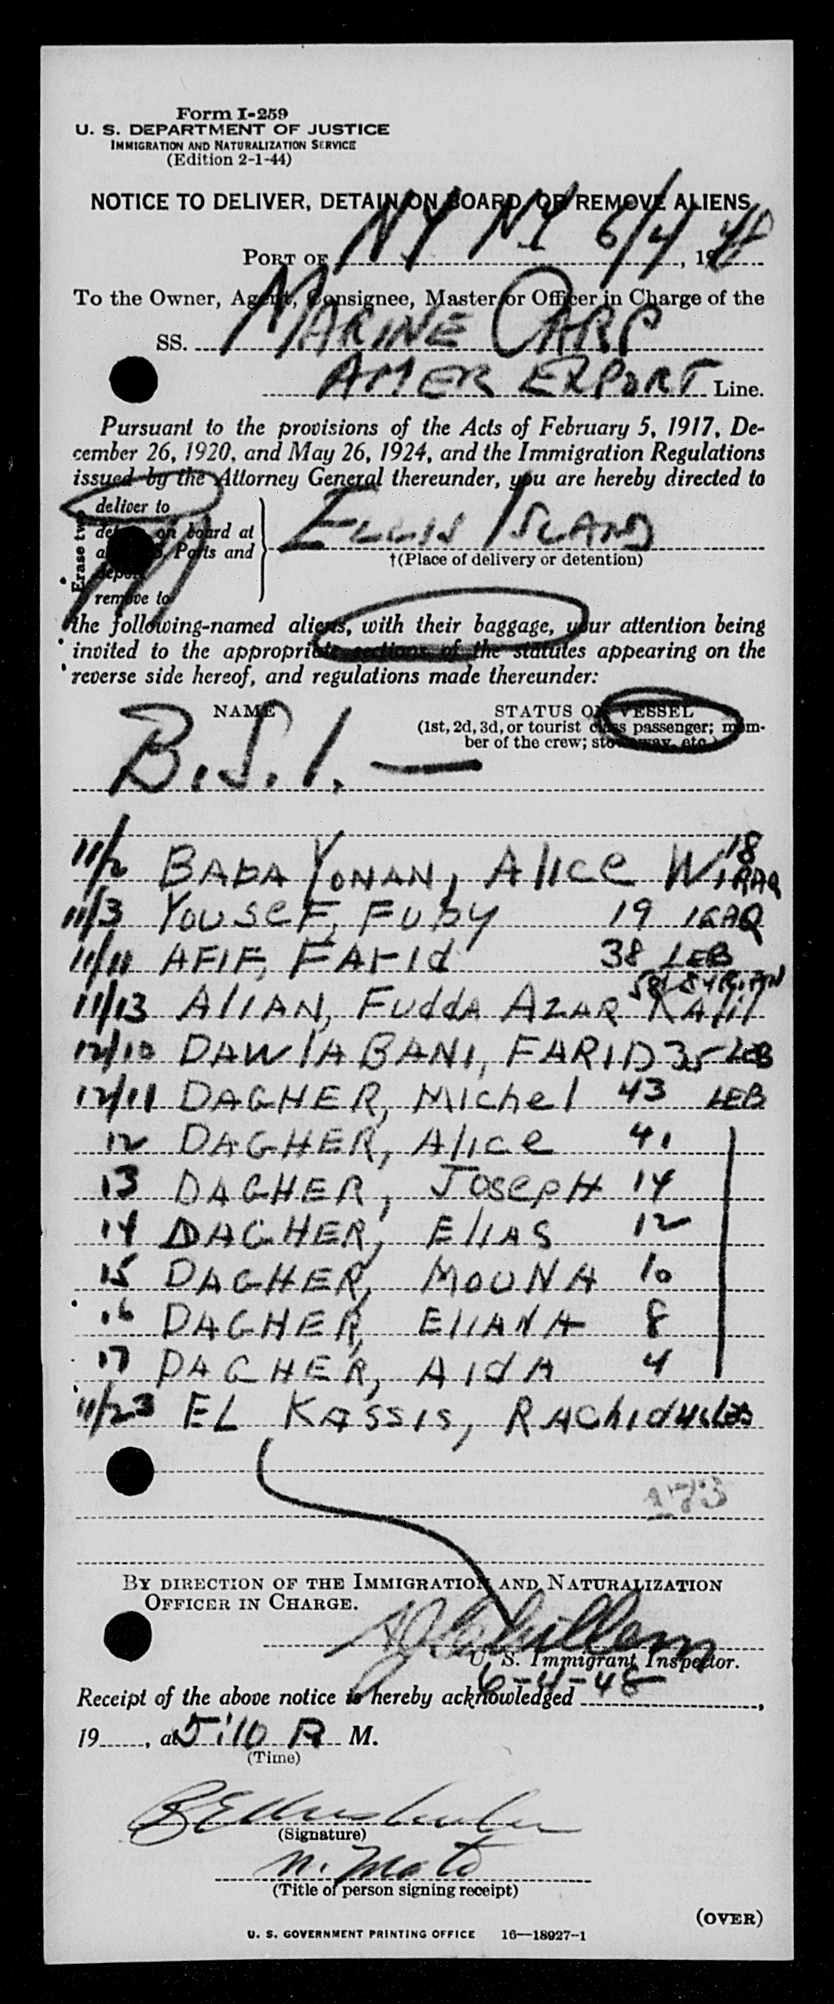 Form I-259
U. S. DEPARTMENT OF JUSTICE
IMMIGRATION AND NATURALIZATION SERVICE
(Edition 2-1-44)
NOTICE TO DELIVER, DETAIN ON BOARD, OR REMOVE ALIENS
PORT OF NY NY 6/4, 1948
To the Owner, Agent, Consignee, Master or Officer in Charge of the
SS. MARINE CARP
AMER EXPORT Line.
Pursuant to the provisions of the Acts of February 5, 1917, De-
cember 26, 1920, and May 26, 1924, and the Immigration Regulations
issued by the Attorney General thereunder, you are hereby directed to
Erase two
deliver to
on board at
Ports and
remove to
ELLIS ISLAND
†(Place of delivery or detention)
the following-named aliens, with their baggage, your attention being
invited to the appropriate sections of the statutes appearing on the
reverse side hereof, and regulations made thereunder:
NAME
STATUS ON VESSEL
(1st, 2d, 3d, or tourist class passenger; mem-
ber of the crew; stowaway, etc.)
B.S.I. —
11/2 BABA YONAN, Alice W 18 IRAQ
11/3 YouseF, FuBy 19 IRAQ
11/11 AFIF, FArId 38 LEB
11/13 AlIAN, FuddA AZAR KAlil 58 SYRIAN
12/10 DAWlA BANI, FARID 35 LEB
12/11 DAGHER, Michel 43 LEB
12 DAGHER, Alice 41
13 DAGHER, JosepH 14
14 DAGHER, ElIAS 12
15 DAGHER, MOUNA 10
16 DAGHER, ElIANA 8
17 DAGHER, AIdA 4
11/23 EL KASSIS, RAChid 46 LEB
173
BY DIRECTION OF THE IMMIGRATION AND NATURALIZATION
OFFICER IN CHARGE.
U. S. Immigrant Inspector.
6-4-48
Receipt of the above notice is hereby acknowledged ,
19 , at 5:10 P. M.
(Time)
(Signature)
(Title of person signing receipt)
(OVER)
U. S. GOVERNMENT PRINTING OFFICE 16—18927-1